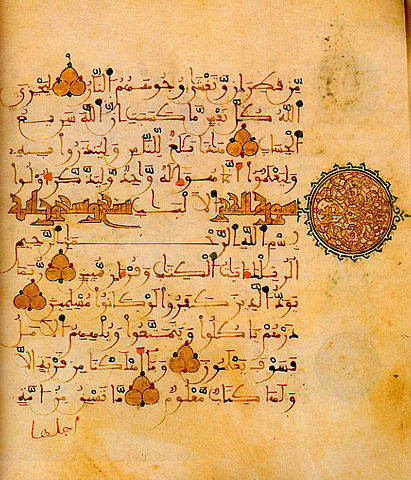 مِّن قَطِرَانٍ وَتَغْشَىٰ وُجُوهَهُمُ النَّارُ لِيَجْزِيَ
اللَّهُ كُلَّ نَفْسٍ مَّا كَسَبَتْ إِنَّ اللَّهَ سَرِيعُ
الْحِسَابِ هَٰذَا بَلَاغٌ لِّلنَّاسِ وَلِيُنذَرُوا بِهِ
وَلِيَعْلَمُوا أَنَّمَا هُوَ إِلَٰهٌ وَاحِدٌ وَلِيَذَّكَّرَ أُولُوا
سورة الحجر الْأَلْبَابِ تسع وتسعون آية
بِسْمِ اللَّهِ الرَّحْمَٰنِ الرَّحِيمِ
الر تِلْكَ آيَاتُ الْكِتَابِ وَقُرْآنٍ مُّبِينٍ رُّبَمَا
يَوَدُّ الَّذِينَ كَفَرُوا لَوْ كَانُوا مُسْلِمِينَ
ذَرْهُمْ يَأْكُلُوا وَيَتَمَتَّعُوا وَيُلْهِهِمُ الْأَمَلُ
فَسَوْفَ يَعْلَمُونَ وَمَا أَهْلَكْنَا مِن قَرْيَةٍ إِلَّا
وَلَهَا كِتَابٌ مَّعْلُومٌ مَّا تَسْبِقُ مِنْ أُمَّةٍ
أجلها